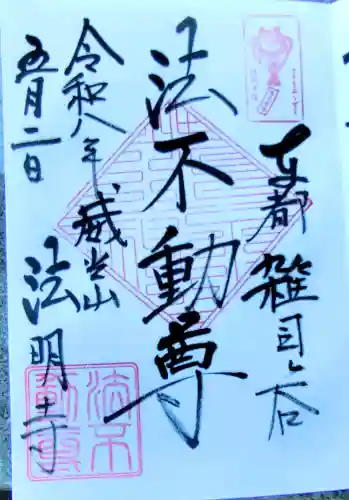 東都 雑司ヶ谷
法不動尊
令和八年 威光山 法明寺
五月二日
法不動尊